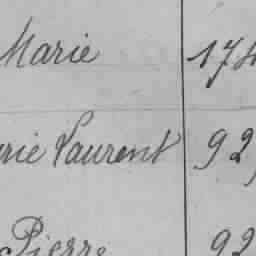 Marie 174
rie Laurent 92
Pierre 92